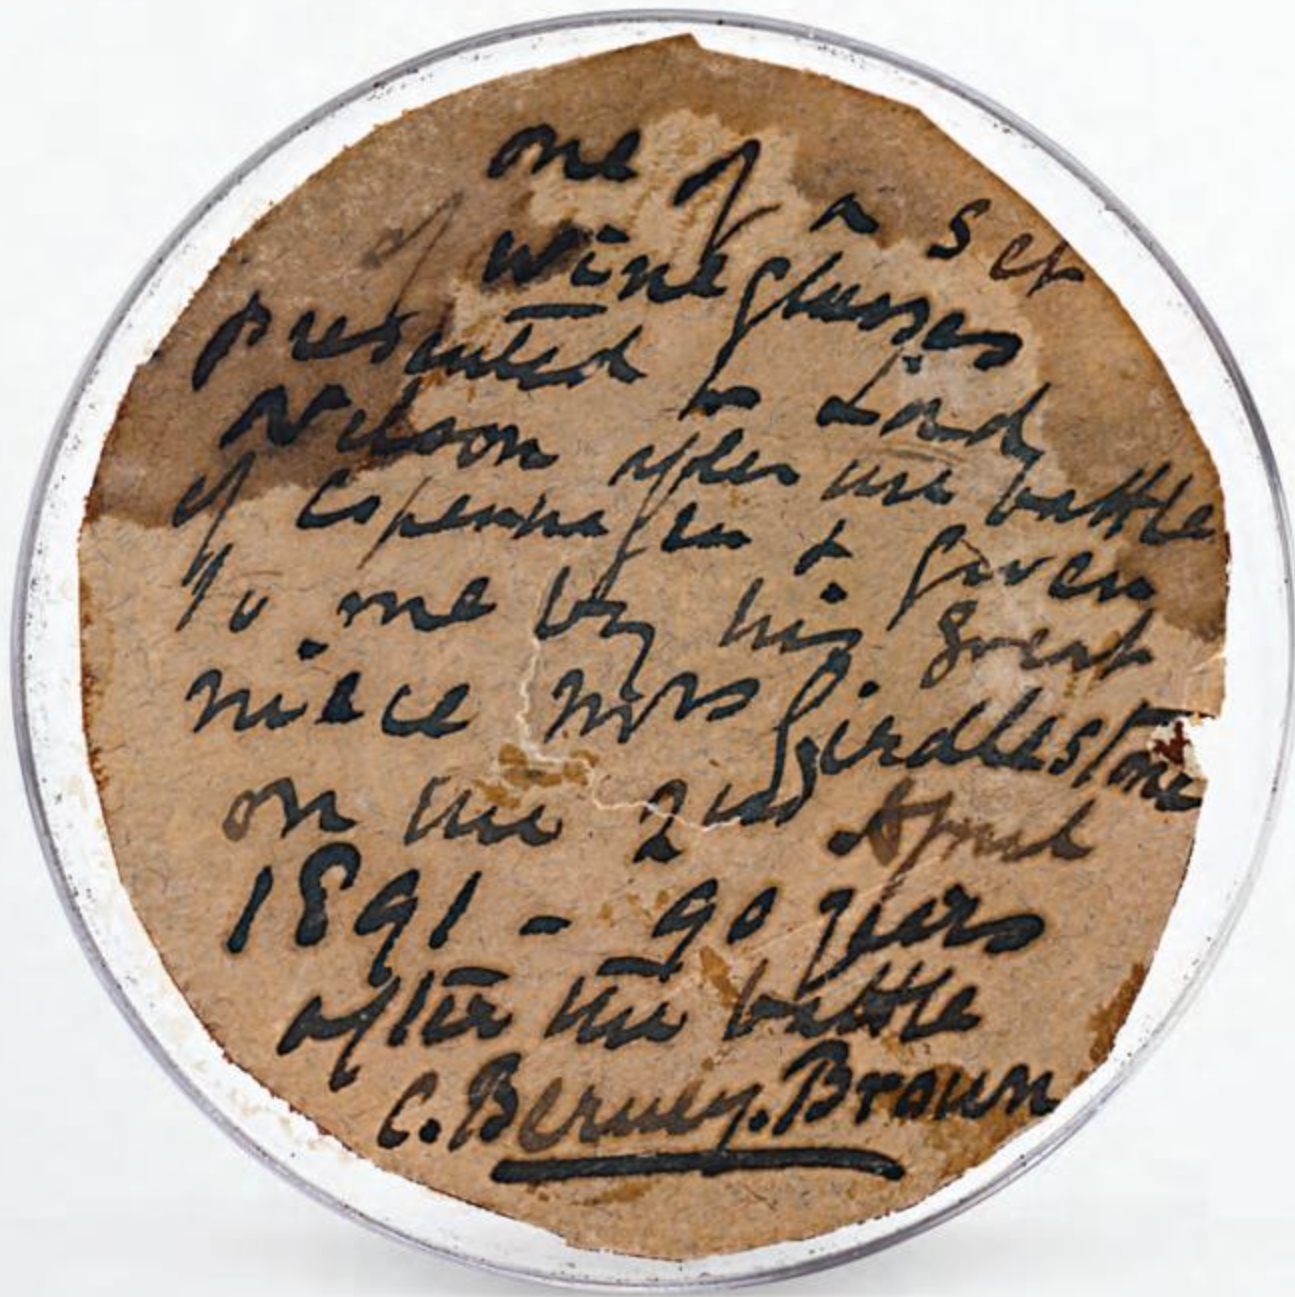 one of a set
of wineglasses
presented to Lord
Nelson after the battle
of Copenhagen & given
to me by his great
niece Mrs Girdlestone
on the 2nd April
1891 - 90 years
after the battle
C. Berney. Brown